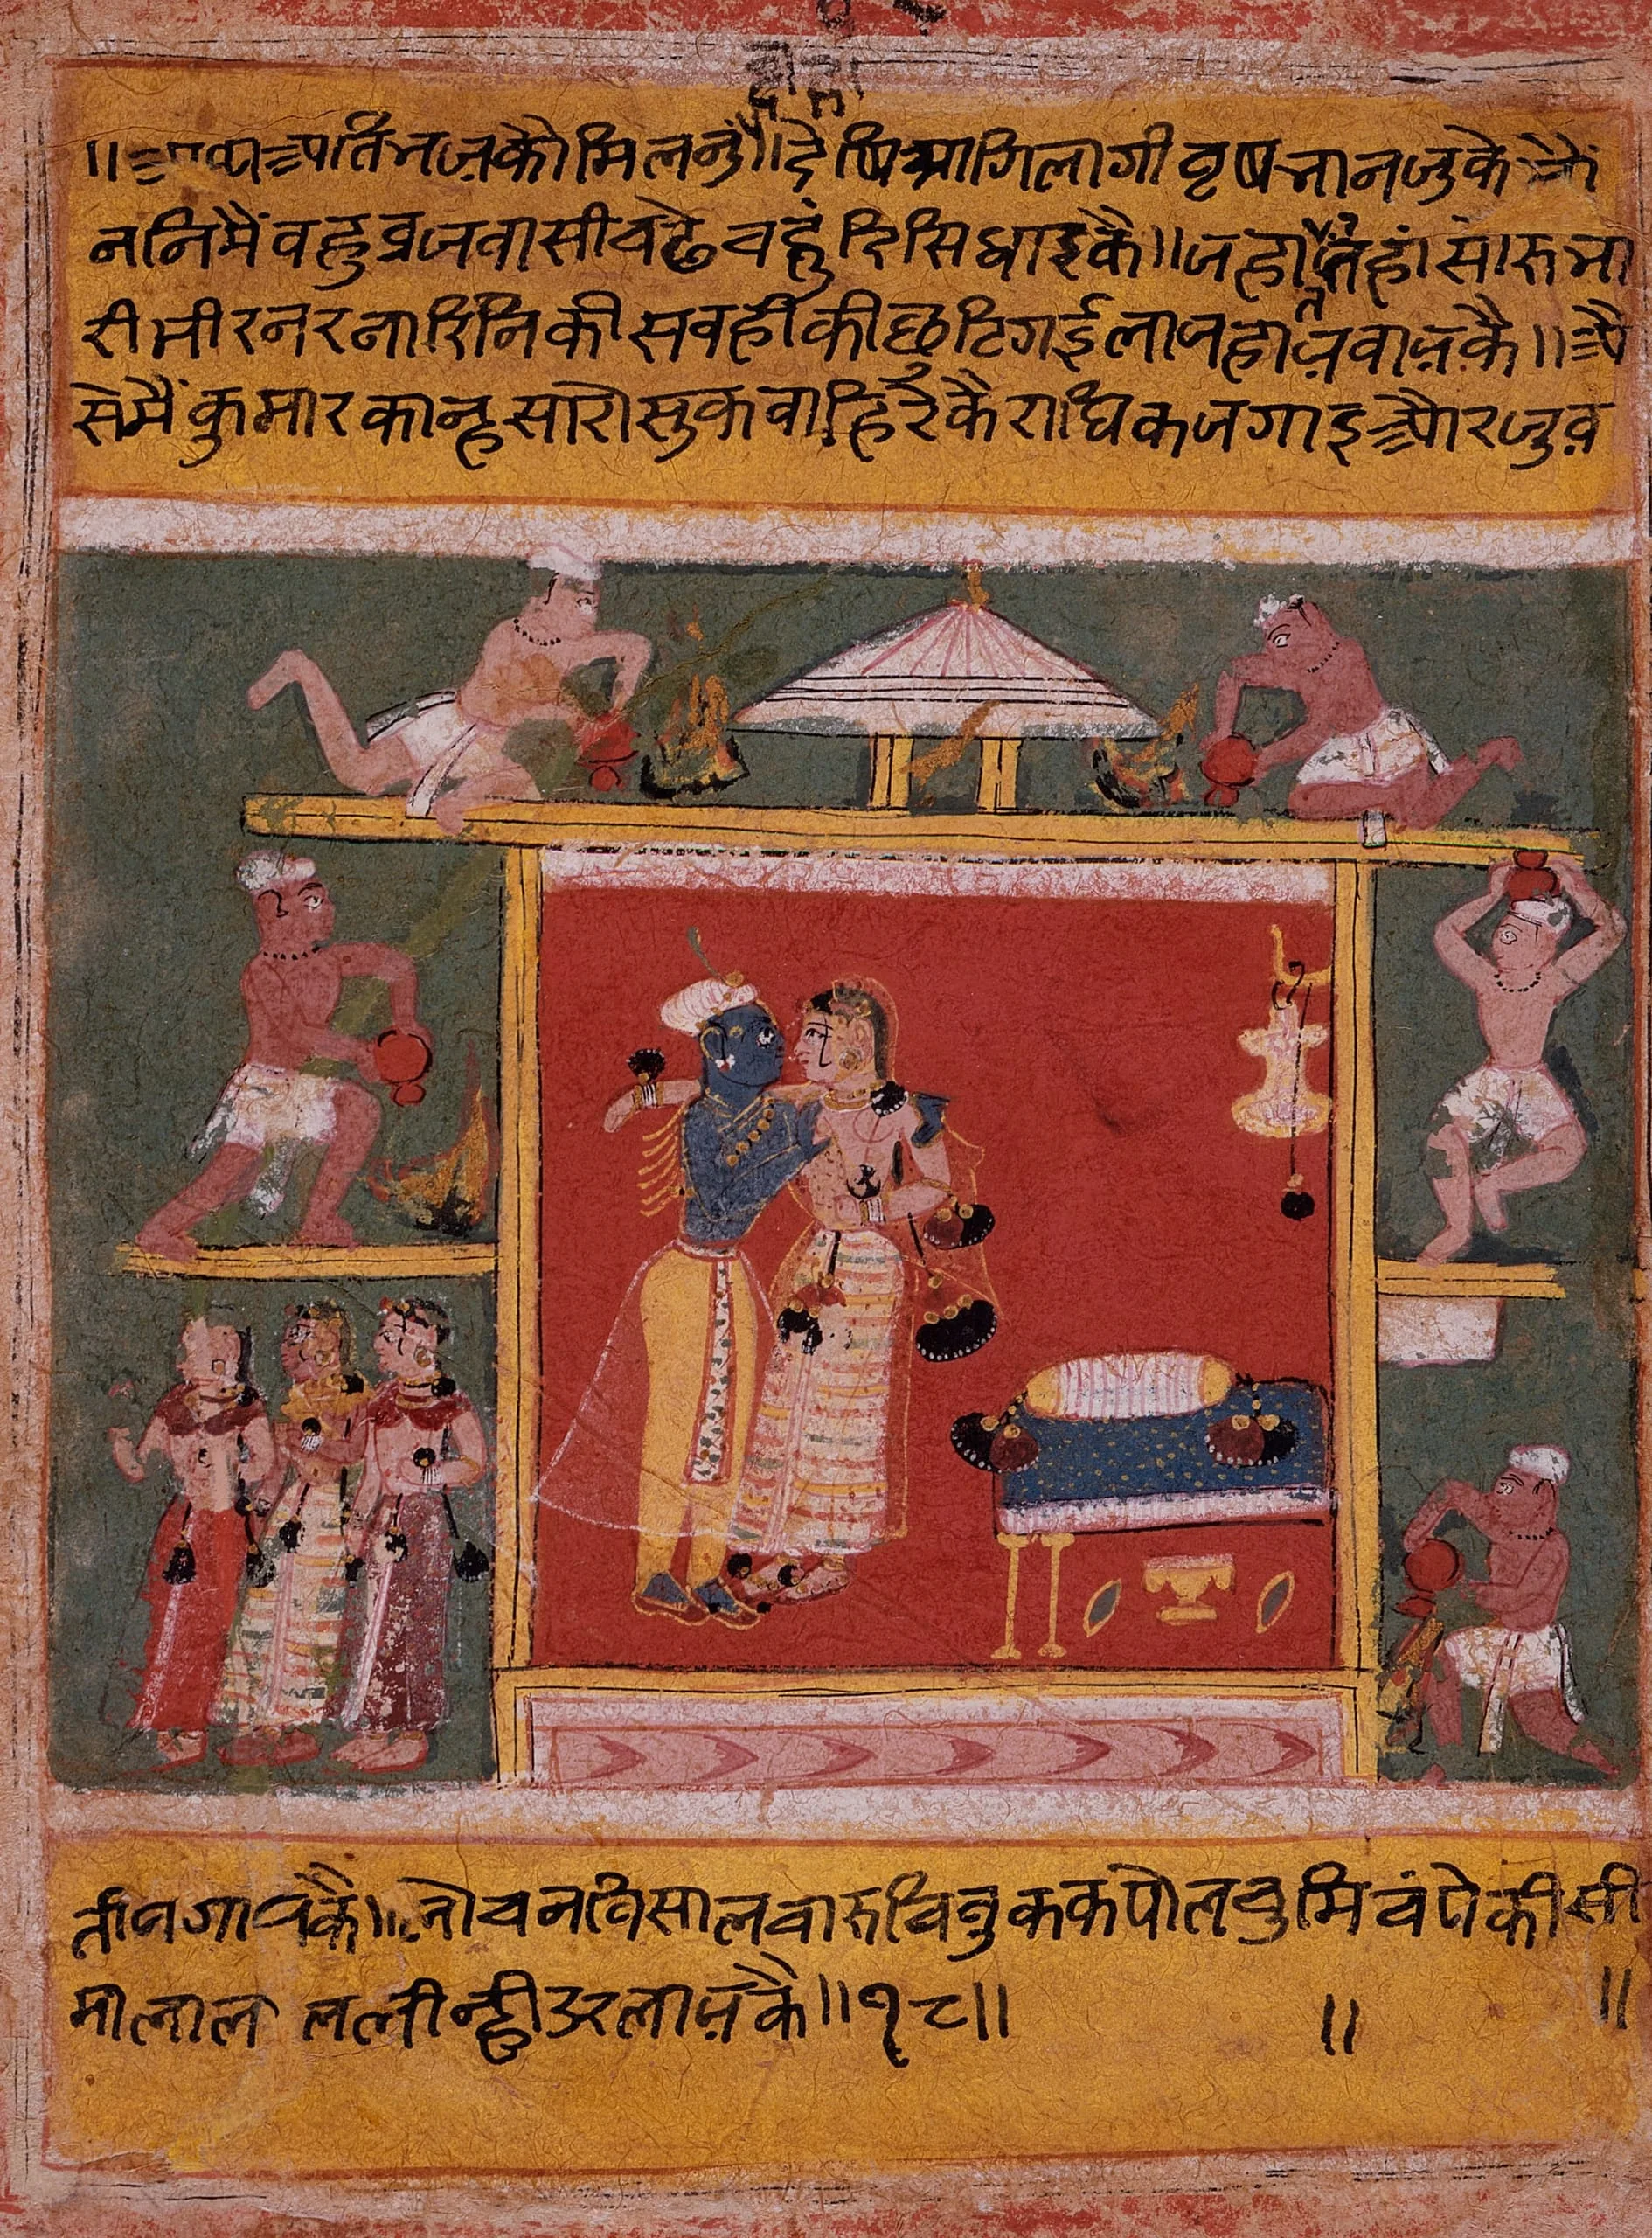 ॥अथ अति भजकौ मिलनु॥देषि आगि लागी वृषभानजुके भौ
ननिमैं वहु व्रजवासी वढे चहुं दिसि धाइकै॥जहां तहां सोरु भा
री भीर नर नारिनिकी सवहीकी छुटि गई लाज हाय़ वाय़कै॥अै
सेमैं कुमार कान्ह सारो सुक वाहिरकै राधिक जगाइ और जुव़
तीन जगायकै॥लोचन विसाल चारु चिवुक कपोल चुमि चंपेकीसी
माला लाल लीन्ही उर लाय़कै॥१८॥ ॥ ॥